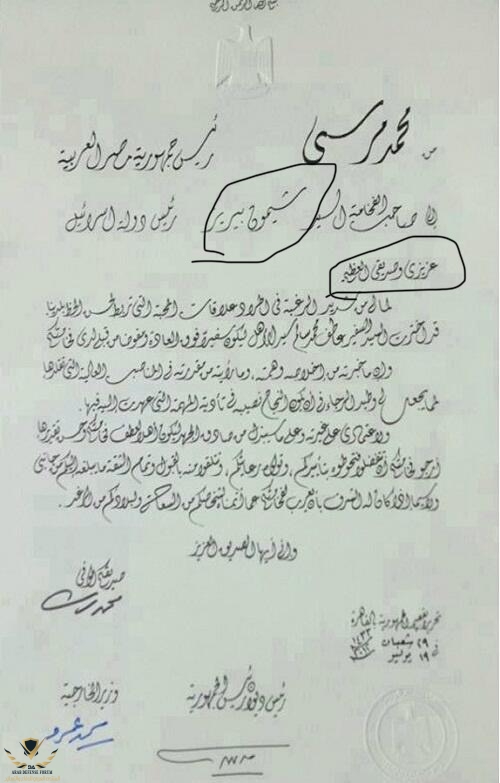 بسم الله الرحمن الرحيم
من محمد مرسي رئيس جمهورية مصر العربية
إلى صاحب الفخامة السيد شيمون بيريز رئيس دولة اسرائيل
عزيزي وصديقي العظيم
لما لي من شديد الرغبة في اطراد علاقات المحبة التي تربط لحسن الحظ بلدينا
قد اخترت السيد السفير عاطف محمد سالم سيد الأهل ليكون سفيرًا فوق العادة ومفوضًا من قبلي لدى فخامتكم
وإن ما خبرته من إخلاصه وهمته، وما رأيته من مقدرته في المناصب العالية التي تقلدها
مما يجعل لي وطيد الرجاء في أن يكون النجاح نصيبه في تأدية المهمة التي عهدت إليه فيها.
ولاعتمادي على غيرته وعلى ما سيبذل من صادق الجهد ليكون أهلًا لعطف فخامتكم وحسن تقديرها
أرجو فخامتكم أن تتفضلوا فتحوطوه بتأييدكم، وتولوه رعايتكم، وتتلقوا منه بالقبول وتمام الثقة ما يبلغه إليكم من جانبي
ولا سيما إذا كان له الشرف بأن يعرب لفخامتكم عما أتمناه لشخصكم من السعادة ولبلادكم من الرغد.
وإني أيها الصديق العزيز
صديقكم الوفي
محمد مرسي
تحريرًا بقصر الجمهورية بالقاهرة
في ٢٩ شعبان ١٤٣٣
في ١٩ يوليو ٢٠١٢
رئيس ديوان رئيس الجمهورية
وزير الخارجية
ARAB DEFENSE FORUM